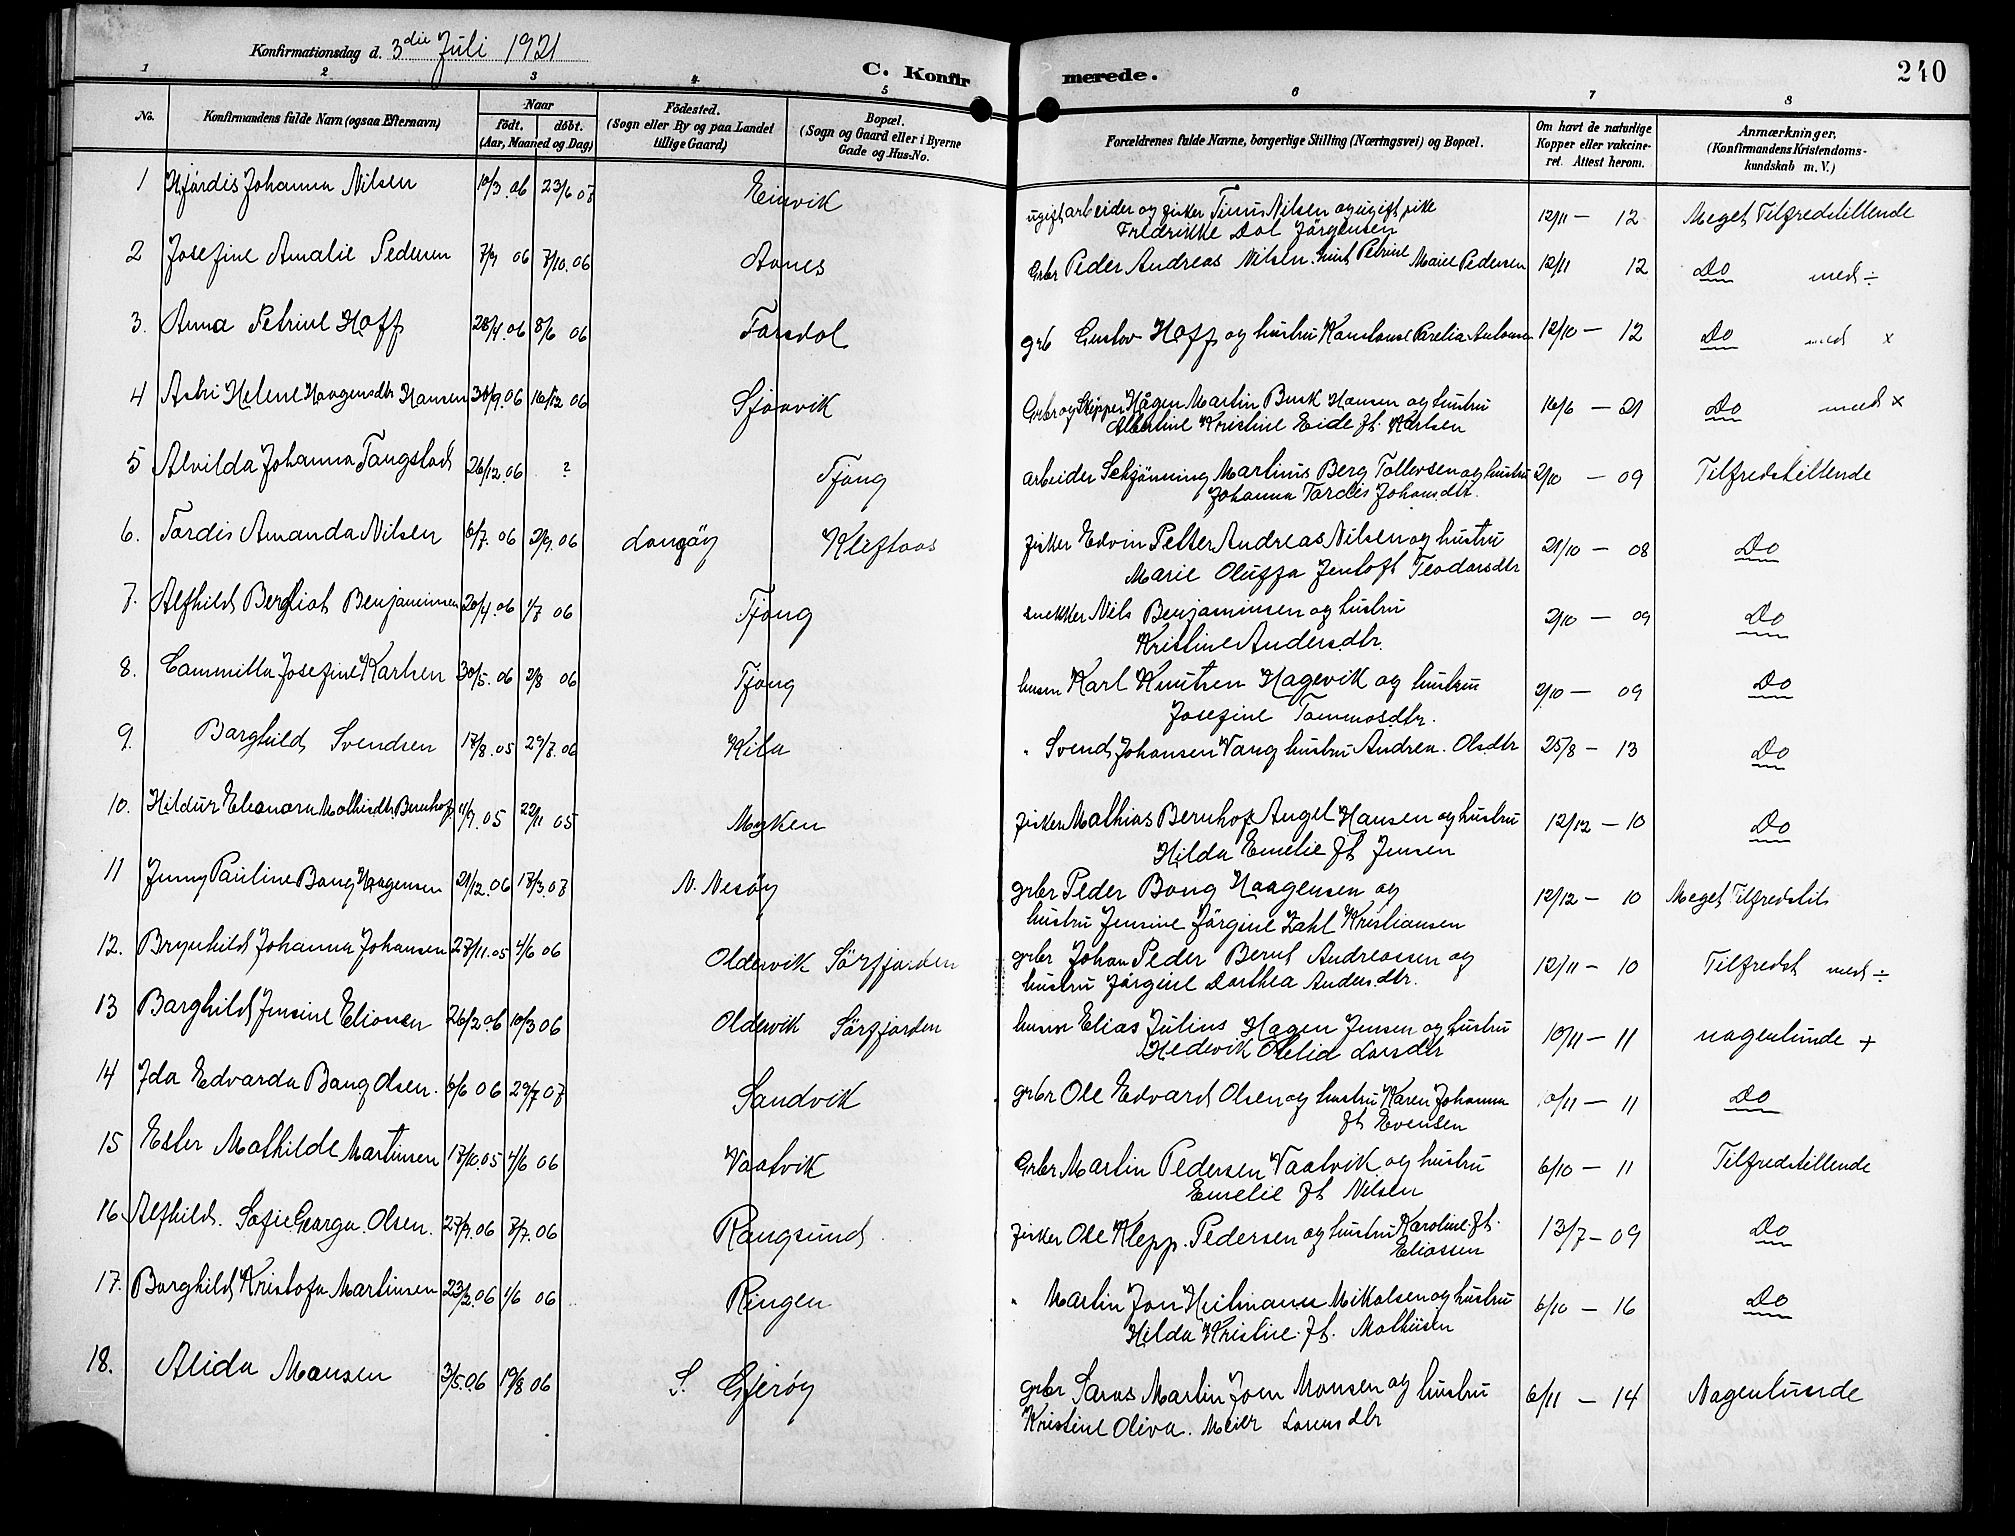 Konfirmationsdag d. 3die Juli 1921
C. Konfirmerede.
240
1 2 3 4 5 6 7 8
No.
Konfirmandens fulde Navn (ogsaa Efternavn)
Naar
födt. döbt.
(Aar, Maaned og Dag)
Födested.
(Sogn eller By og paa Landet
tillige Gaard)
Bopæl.
(Sogn og Gaard eller i Byerne
Gade og Hus-No.
Forældrenes fulde Navne, borgerlige Stilling (Næringsvei) og Bopæl.
Om havt de naturlige
Kopper eller vakcine-
ret. Attest herom.
Anmærkninger,
(Konfirmandens Kristendoms-
kundskab m. V.)
1 Hjördis Johanna Nilsen 10/3 06 23/6 07 ugift arbeider og fisker Nilsen og ugift pike 12/11 – 12 Meget Tilfredstillende
Fredrikke Dol Jörgensen
2 Josefine Amalie Pedersen 06 7/10. 06 Aanes Grbr Peder Andreas Nilsen Petrine Marie Pedersen 12/11 12 Do med ÷
3. Anna Petrine Hoff 28/4. 06 8/6 06 Forsdol grb Gustav Hoff og hustru 12/10 – 12 Do med x
4 Astri Helene Haagensdtr Hansen 30/9. 06 16/12 06 Sjonvik Grbr og Skipper Hågen Martin Busk Hansen og hustru 16/6 – 21 Do med x
Albertine Kristine Eide ft. Karlsen
5 Alvilda Johanna Tangstad 26/12. 06 ? Tjong arbeider Martinus Berg Tollevsen og hustru 2/10 – 09 Tilfredstillende
Johanna Tordis Johansdtr.
6. Tordis Amanda Nilsen 6/7. 06 2/9. 06 Langöy Kleftaas fisker Edvin Petter Andreas Nilsen og hustru 21/10 – 08 Do
Marie Oluffa Jentoft Teodorsdtr
7. Alfhild Bergliot Benjaminsen 20/4. 06 1/7 06 Tjong snekker Nils Benjaminsen og hustru 2/10 – 09 Do
Kristine Andersdtr.
8. Cammilla Josefine Karlsen 30/5. 06 2/8 06 Tjong husm Karl Knutsen Hagevik og hustru 2/10 – 09 Do
Josefine Tommosdtr.
9. Borghild Svendsen 17/8. 05 29/8. 06 Kila " Svend Johansen Vang hustru Andrea. Olsdtr 25/8 – 13 Do
10. Hildur Eleonora Mathisdtr Bernhof 4/9. 05 22/11 05 Myken fisker Mathias Bernhof Angel Hansen og hustru 12/12 – 10 Do
Hilda Emelie ft Jensen
11 Jenny Pauline Bang Haagensen 21/12. 06 17/3. 07 N. Nesöy grbr Peder Bang Haagensen og 12/12 – 10 Meget Tilfredstil
hustru Jensine Jörgine Zahl Kristiansen
12. Brynhild Johanna Johansen 27/11. 05 4/6 06 Oldervik Sörfjorden grbr Johan Peder Bernt Andreassen og 12/11 – 10 Tilfredst med ÷
hustru Jörgine Dorthea Andersdtr.
13 Borghild Jensine Eliasen 26/2. 06 10/3 06 Oldervik Sörfjorden husm Elias Julius Hagen Jensen og hustru 10/11 – 11 nogenlunde +
Hedevik Lorsdtr
14 Ida Edvarda Bang Olsen. 6/6 06 29/7 07 Sandvik grbr Ole Edvard Olsen og hustru Karen Johanna 10/11 – 11 Do
ft Evensen
15 Ester Mathilde Martinsen 17/10. 05 4/6 06 Vaatvik Grbr Martin Pedersen Vaatvik og hustru 6/10 – 11 Tilfredstillende
Emelie ft Nilsen
16 Alfhild. Sofie Georga. Olsen. 06 7/7. 06 Rangsund fisker Ole Klepp. Pedersen og hustru Karoline ft. 13/7 – 09 Do
Eliassen
17. Borghild Kristofa Martinsen 23/2. 06 4/6 06 Ringen " Martin Jon Heilmann Mikkalsen og hustru 6/10 – 16 Do
Hilda Kristine. ft. Mathisen
18. Alida Monsen 3/5. 06 19/8 06 S. Gjeröy grbr Martin Joen Monsen og hustru 6/11 – 14 Nogenlunde
Kristine Oliva. Meier Lorensdtr